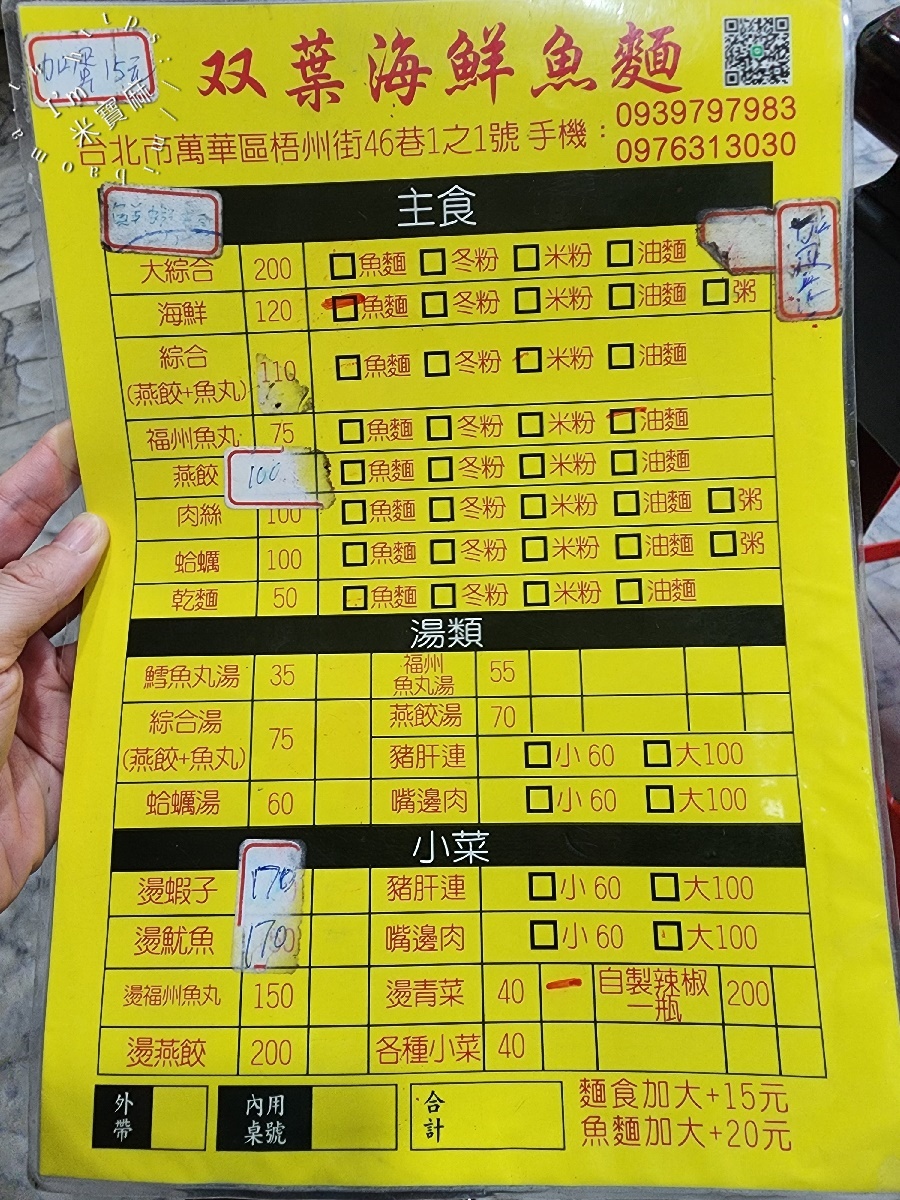 加蛋 15元
双葉海鮮魚麵
米寶麻
台北市萬華區梧州街46巷1之1號 手機：
0939797983
0976313030
主食
大綜合 200 □魚麵 □冬粉 □米粉 □油麵
海鮮 120 □魚麵 □冬粉 □米粉 □油麵 □粥
綜合
(燕餃+魚丸) 110 □魚麵 □冬粉 □米粉 □油麵
福州魚丸 75 □魚麵 □冬粉 □米粉 □油麵
燕餃 100 □魚麵 □冬粉 □米粉 □油麵
肉絲 100 □魚麵 □冬粉 □米粉 □油麵 □粥
蛤蠣 100 □魚麵 □冬粉 □米粉 □油麵 □粥
乾麵 50 □魚麵 □冬粉 □米粉 □油麵
湯類
鱈魚丸湯 35 福州魚丸湯 55
綜合湯
(燕餃+魚丸) 75 燕餃湯 70
豬肝連 □小 60 □大100
蛤蠣湯 60 嘴邊肉 □小 60 □大100
小菜
燙蝦子 170 豬肝連 □小 60 □大100
燙魷魚 170 嘴邊肉 □小 60 □大100
燙福州魚丸 150 燙青菜 40 自製辣椒一瓶 200
燙燕餃 200 各種小菜 40
外帶 內用桌號 合計
麵食加大+15元
魚麵加大+20元